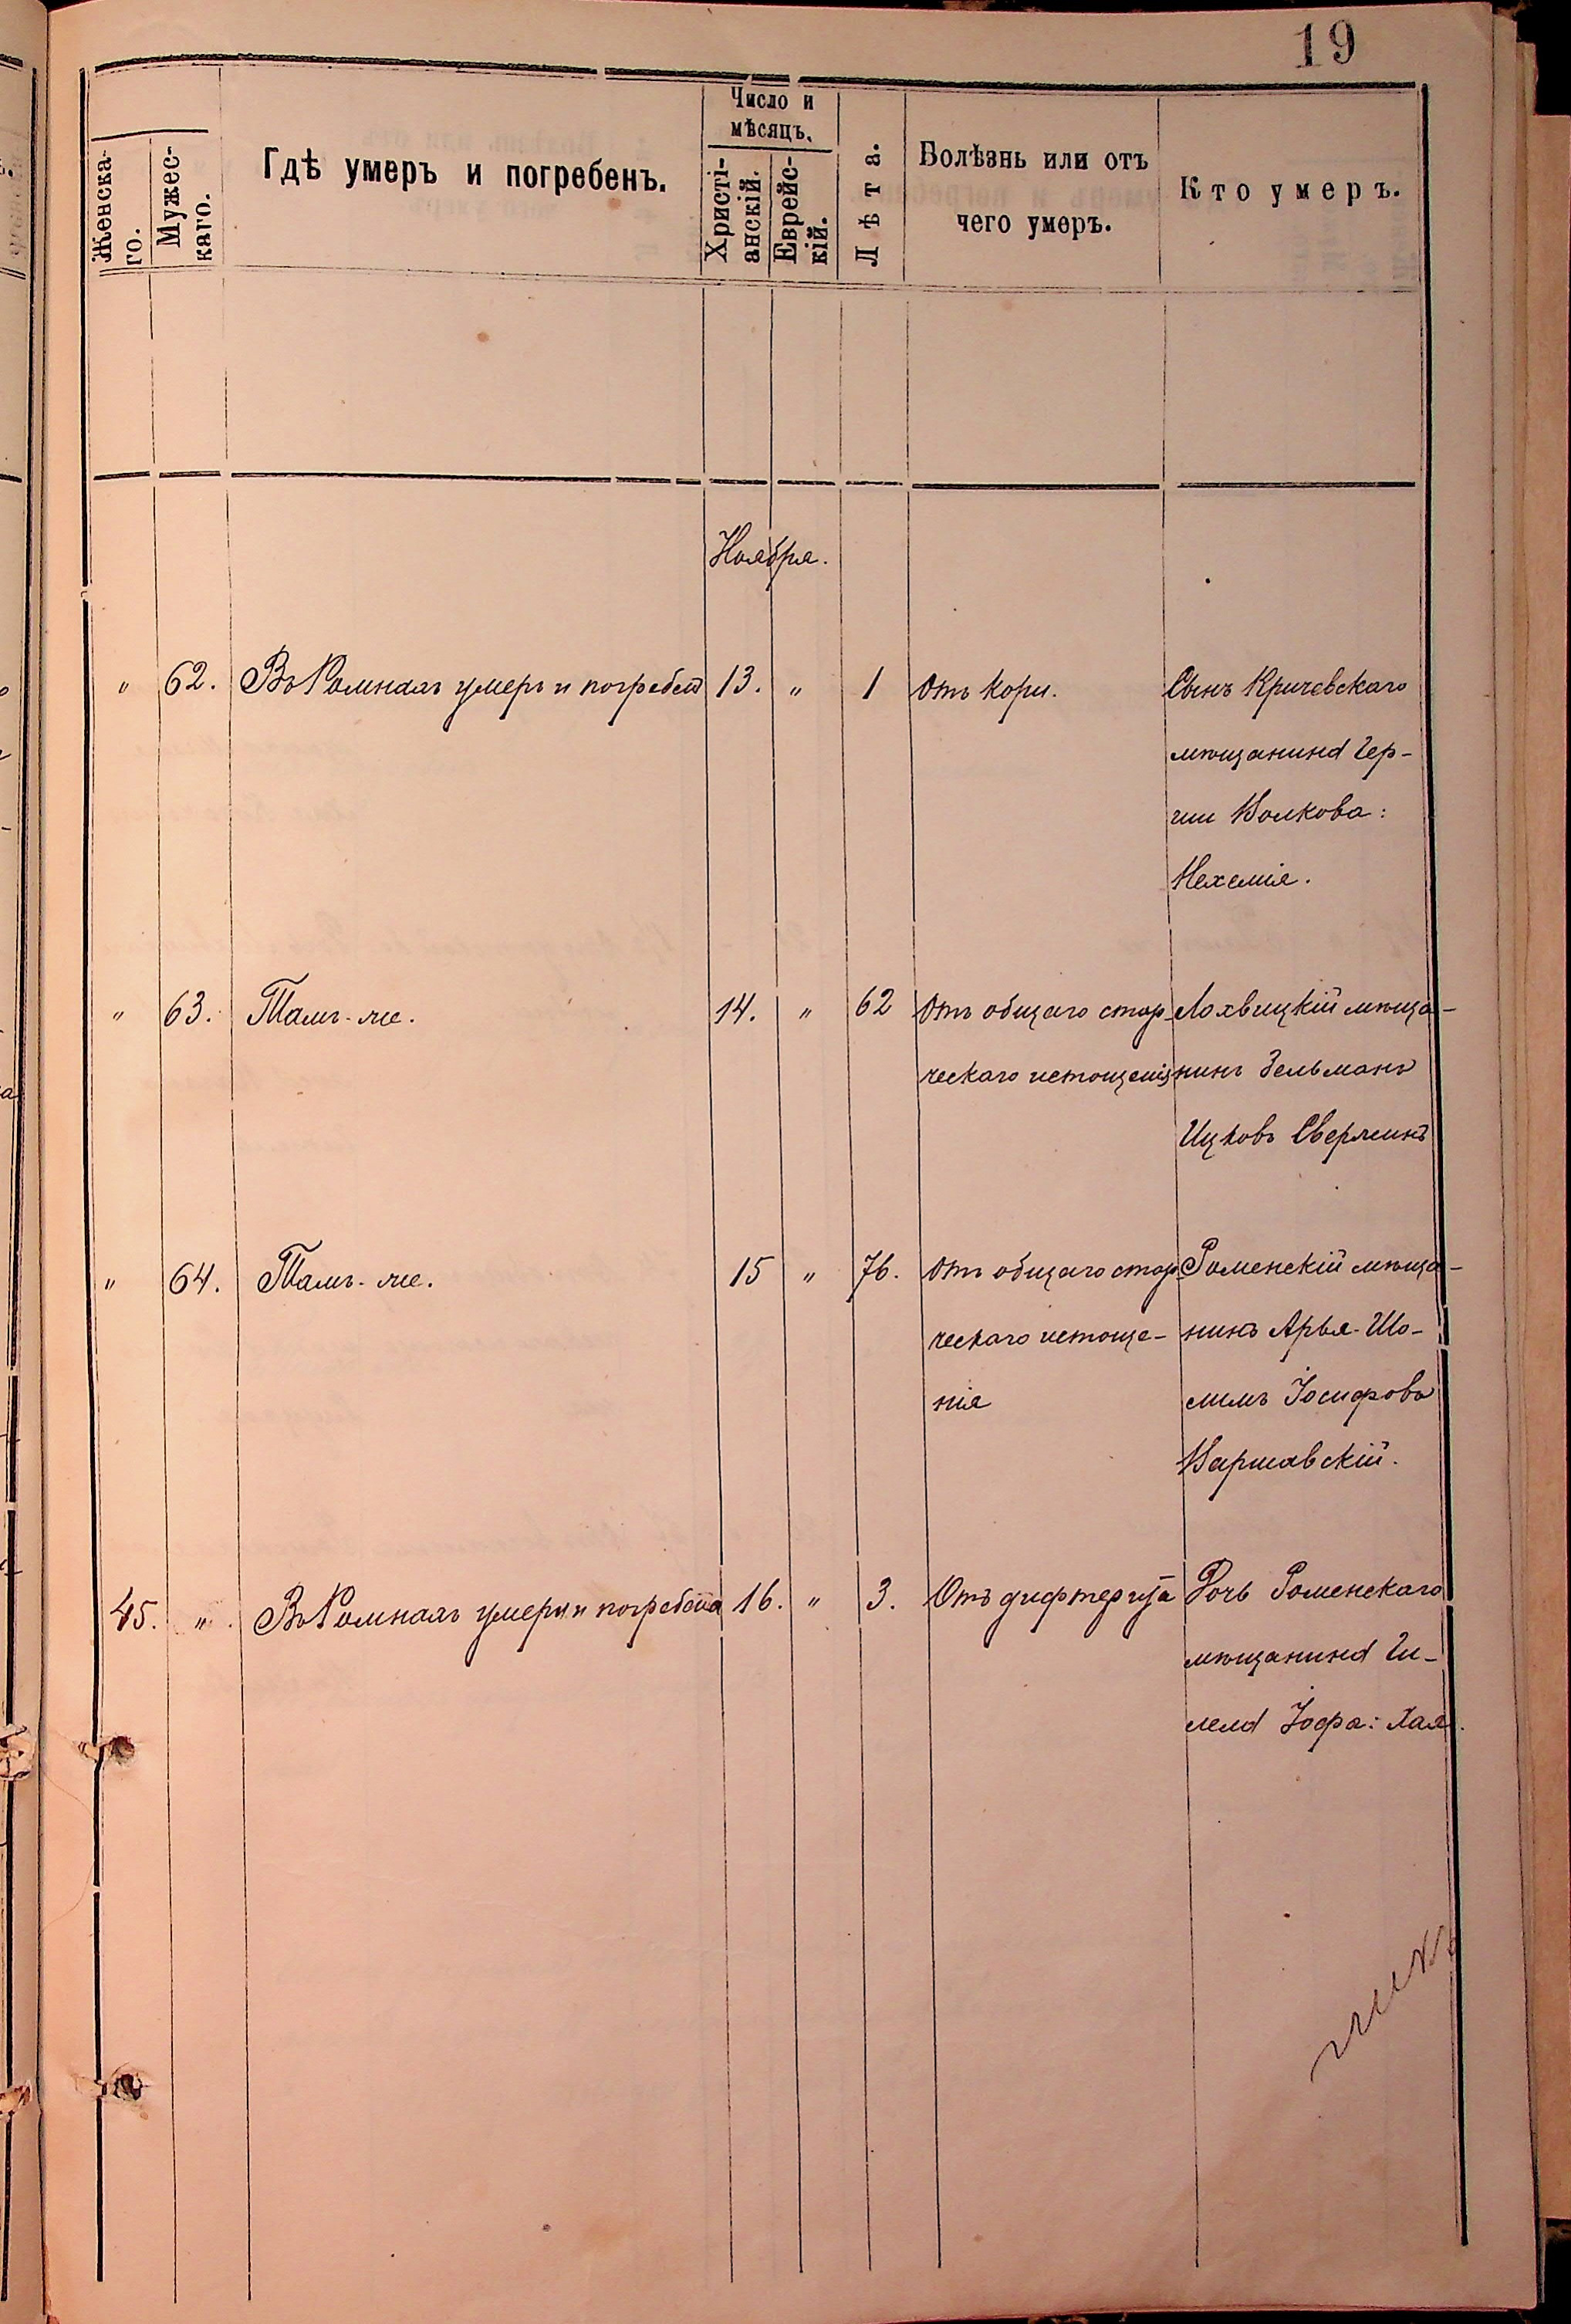 19
Женска-
го.
Мужес-
каго.
Гдѣ умеръ и погребенъ.
Число и
мѣсяцъ.
Христі-
анскій.
Еврейс-
кій.
Лѣта.
Болѣзнь или отъ
чего умеръ.
Кто умеръ.
Ноября.
" 62. Въ Ромнахъ умеръ и погребенъ 13. " 1 Отъ кори. Сынъ Кричевскаго
мѣщанина Гер-
ши Волкова:
Нехемія.
" 63. Тамъ-же. 14. " 62 Отъ общаго стар- Лохвицкій мѣща-
ческаго истощенія нинъ Зельманъ
Ицковъ
" 64. Тамъ-же. 15 " 76. Отъ общаго стар- Роменскій мѣща-
ческаго истоще- нинъ Арья-Шо-
нія лимъ Іосифовъ
Варшавскій.
45. " Въ Ромнахъ умерла и погребена 16. " 3. Отъ дифтерита Дочь Роменскаго
мѣщанина Ги-
леля Іофа: Хая.